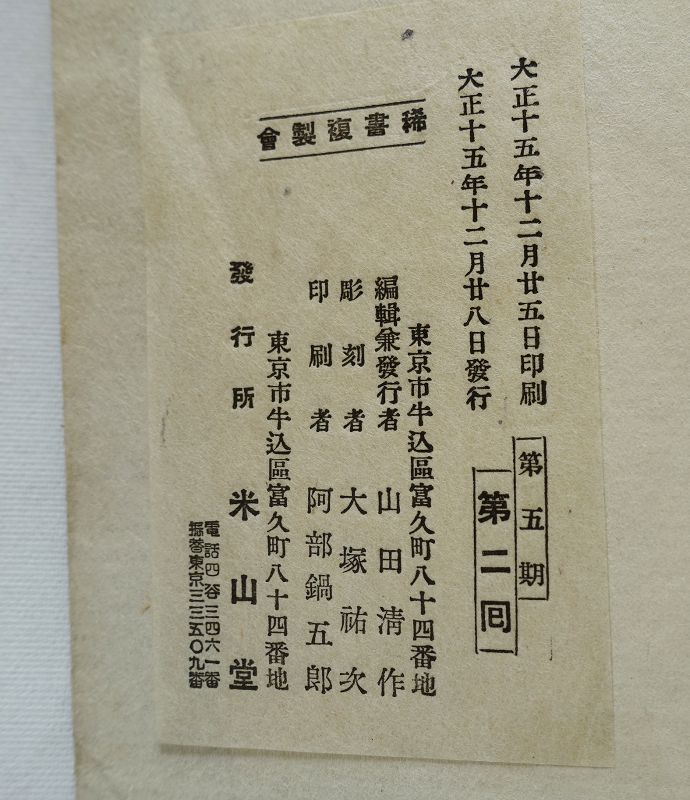 大正十五年十二月廿五日印刷
大正十五年十二月廿八日發行
第五期
第二回
稀書複製會
東京市牛込區富久町八十四番地
編輯兼發行者 山田淸作
彫刻者 大塚祐次
印刷者 阿部鍋五郎
東京市牛込區富久町八十四番地
發行所 米山堂
電話四谷三四六一番
振替東京三三五〇九番